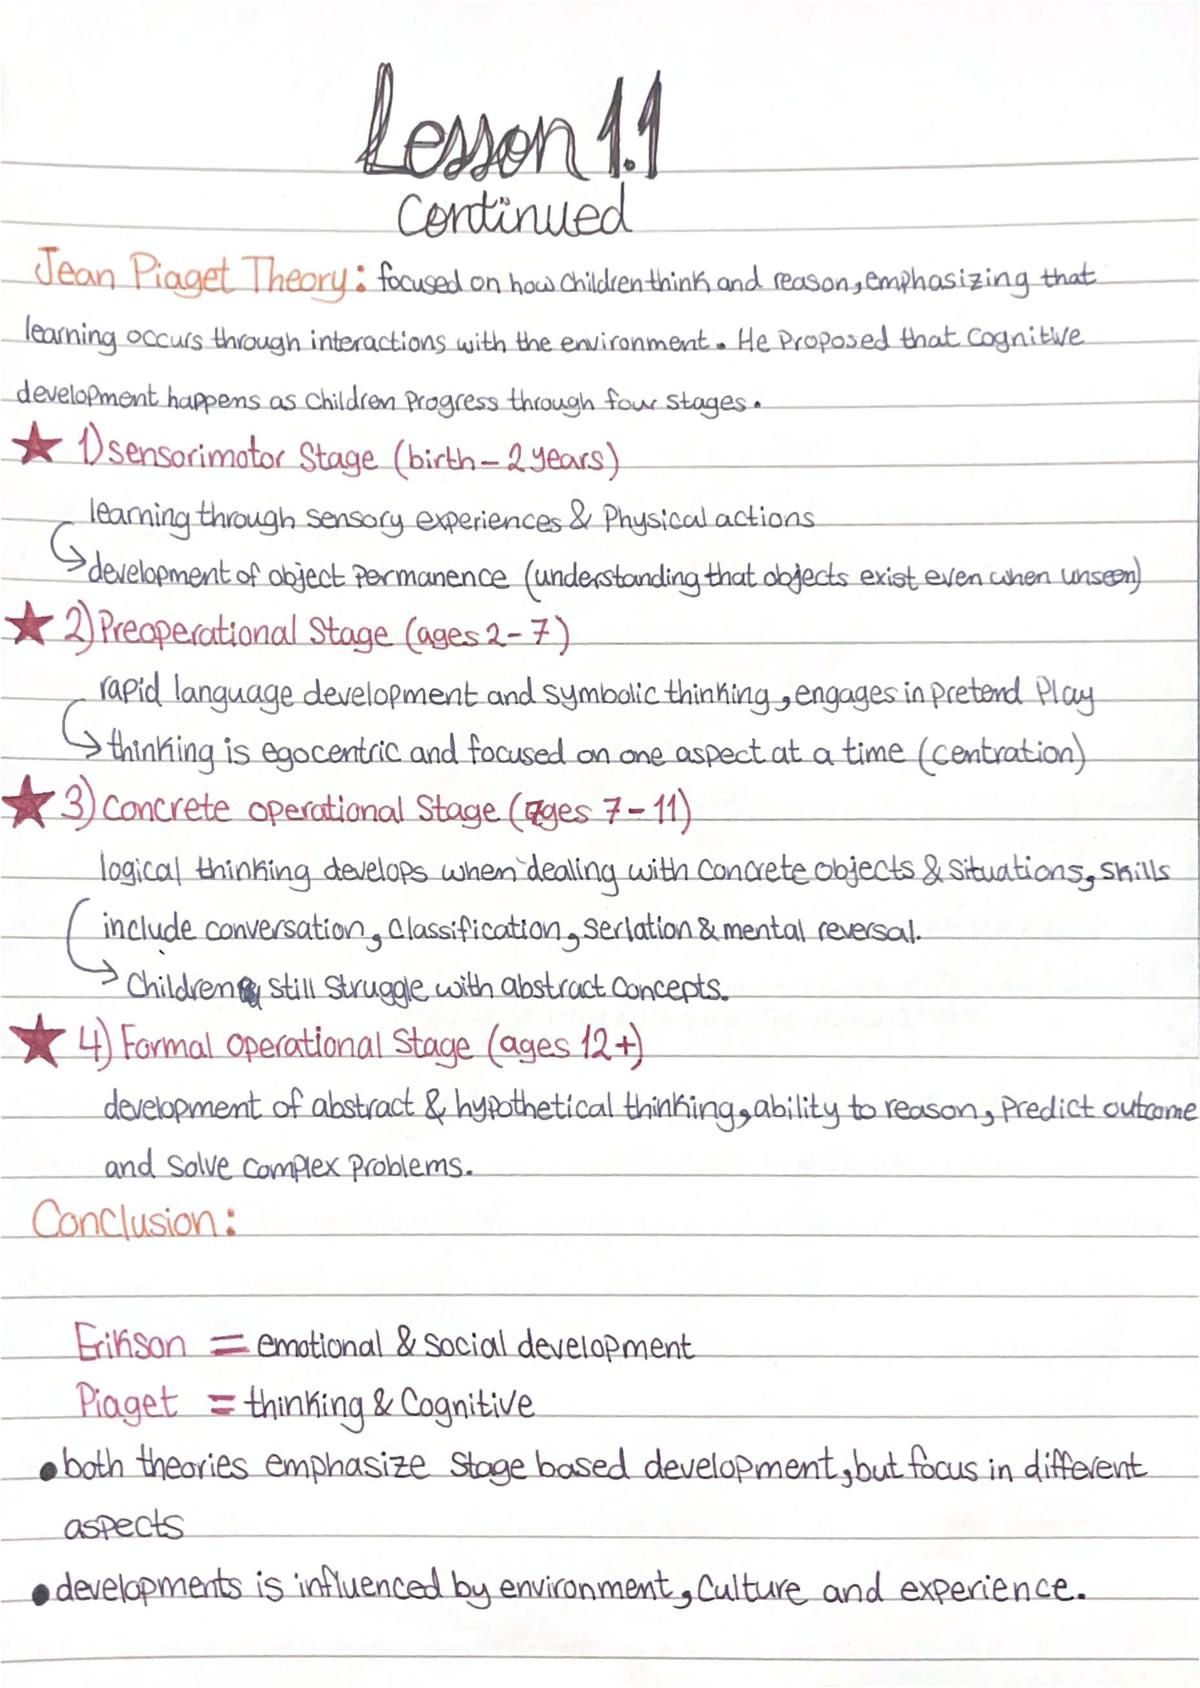 Lesson 1.1
Continued
Jean Piaget Theory: focused on how children think and reason, emphasizing that
learning occurs through interactions with the environment. He Proposed that Cognitive
development happens as children Progress through four stages.
★ 1) sensorimotor Stage (birth - 2 years)
learning through sensory experiences & Physical actions
development of object Permanence (understanding that objects exist even when unseen)
★ 2) Preoperational Stage (ages 2-7)
rapid language development and symbolic thinking, engages in pretend Play
thinking is egocentric and focused on one aspect at a time (centration)
★ 3) Concrete operational Stage (ages 7-11)
logical thinking develops when dealing with Concrete objects & situations, skills
include conversation, Classification, Serlation & mental reversal.
Children still struggle with abstract Concepts.
★ 4) Formal Operational Stage (ages 12+)
development of abstract & hypothetical thinking, ability to reason, Predict outcome
and Solve Complex Problems.
Conclusion:
Erikson = emotional & Social development
Piaget = thinking & Cognitive
• both theories emphasize Stage based development, but focus in different
aspects
• developments is influenced by environment, Culture and experience.